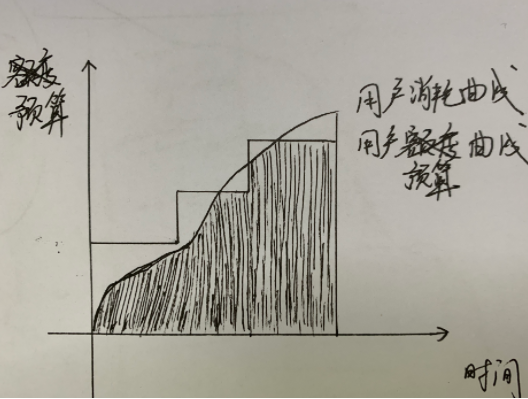 额度
预算
用户消耗曲线
用户额度曲线
预算
时间